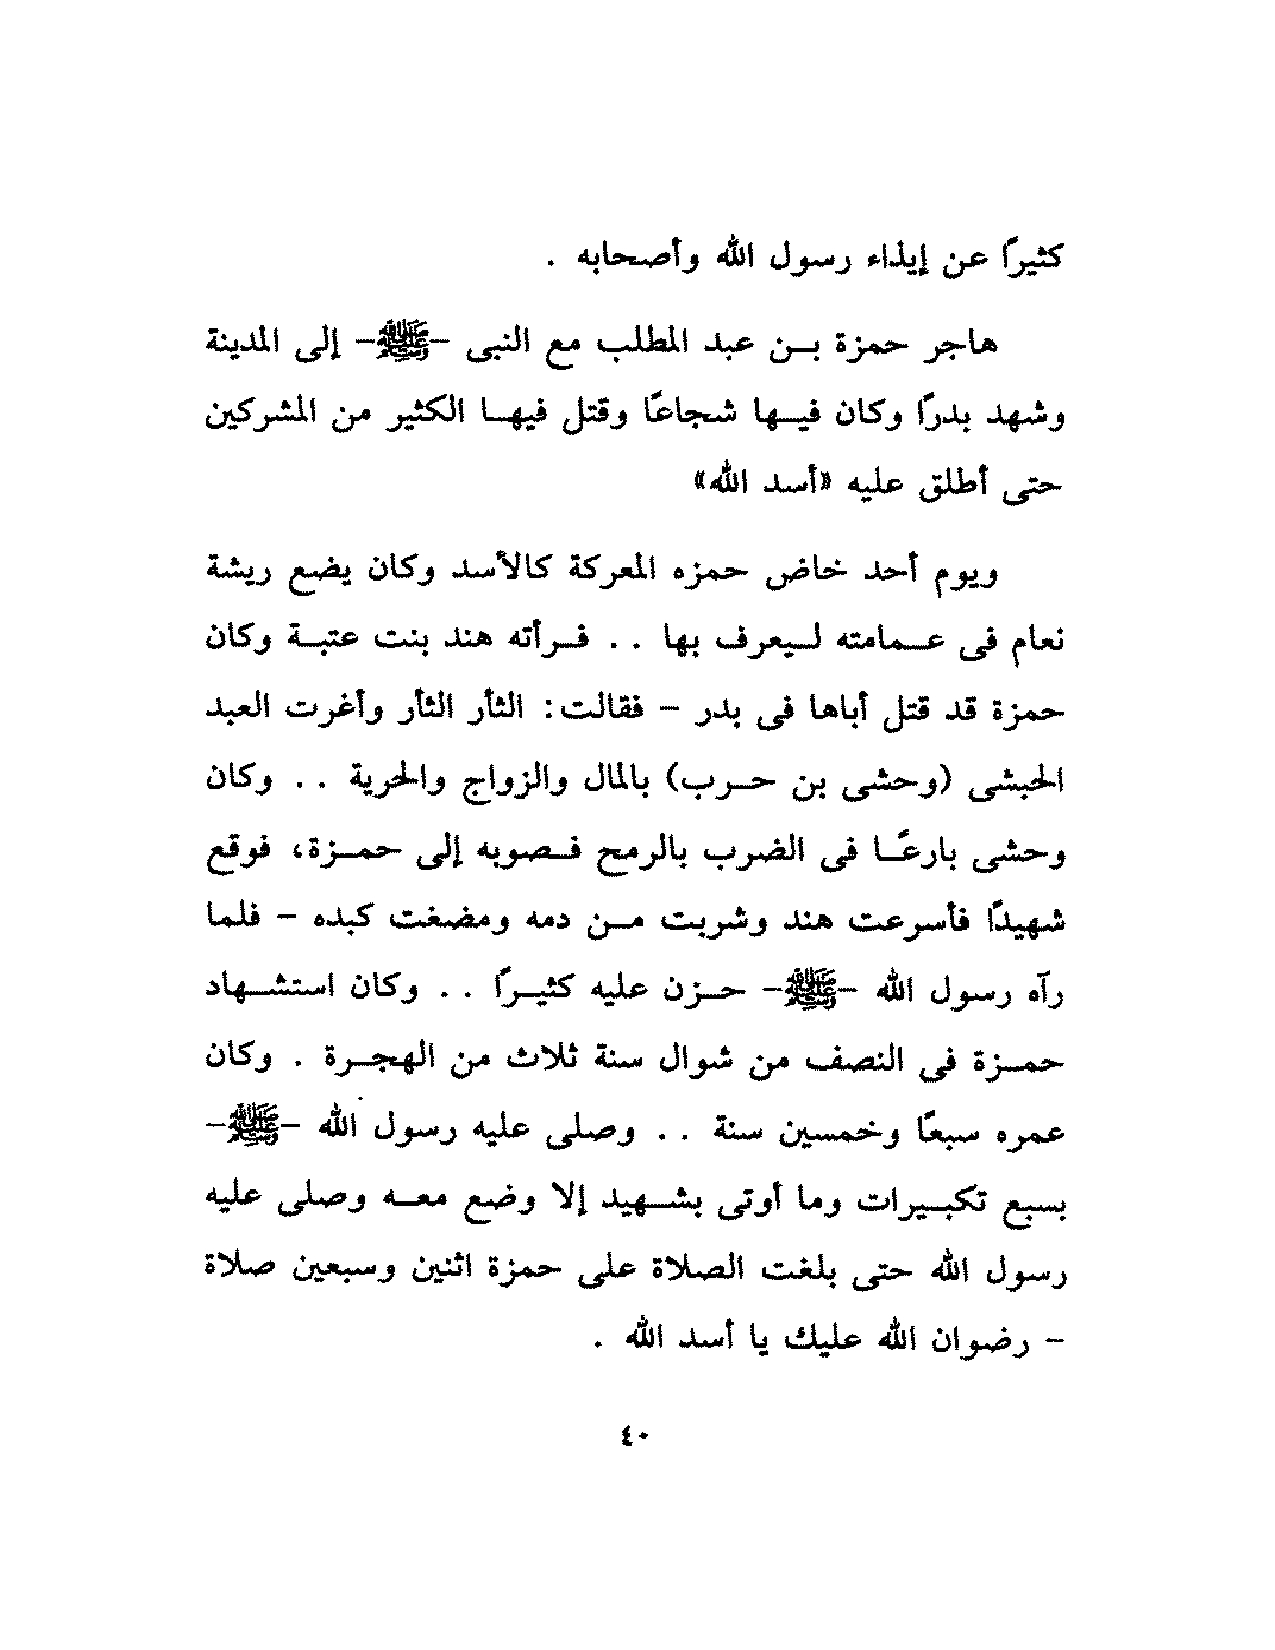 كثيرًا عن إيذاء رسول الله وأصحابه .
هاجر حمزة بن عبد المطلب مع النبى -ﷺ- إلى المدينة
وشهد بدرًا وكان فيها شجاعًا وقتل فيها الكثير من المشركين
حتى أطلق عليه «أسد الله»
ويوم أحد خاض حمزه المعركة كالأسد وكان يضع ريشة
نعام فى عمامته ليعرف بها . . فرأته هند بنت عتبة وكان
حمزة قد قتل أباها فى بدر - فقالت : الثأر الثأر وأغرت العبد
الحبشى (وحشى بن حرب) بالمال والزواج والحرية . . وكان
وحشى بارعًا فى الضرب بالرمح فصوبه إلى حمزة، فوقع
شهيدًا فأسرعت هند وشربت من دمه ومضغت كبده - فلما
رآه رسول الله -ﷺ- حزن عليه كثيرًا . . وكان استشهاد
حمزة فى النصف من شوال سنة ثلاث من الهجرة . وكان
عمره سبعًا وخمسين سنة . . وصلى عليه رسول الله -ﷺ-
بسبع تكبيرات وما أوتى بشهيد إلا وضع معه وصلى عليه
رسول الله حتى بلغت الصلاة على حمزة اثنين وسبعين صلاة
- رضوان الله عليك يا أسد الله .
٤٠